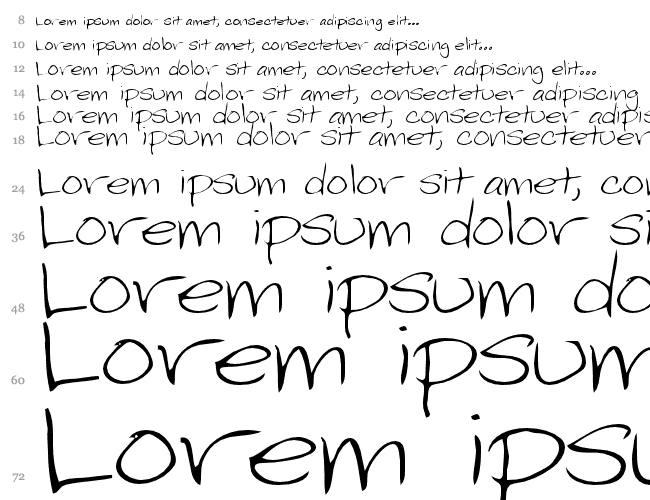 8 Lorem ipsum dolor sit amet, consectetuer adipiscing elit...
10 Lorem ipsum dolor sit amet, consectetuer adipiscing elit...
12 Lorem ipsum dolor sit amet, consectetuer adipiscing elit...
14 Lorem ipsum dolor sit amet, consectetuer adipiscing
16 Lorem ipsum dolor sit amet, consectetuer adipis
18 Lorem ipsum dolor sit amet, consectetuer
24 Lorem ipsum dolor sit amet, co
36 Lorem ipsum dolor si
48 Lorem ipsum do
60 Lorem ipsum
72 Lorem ips